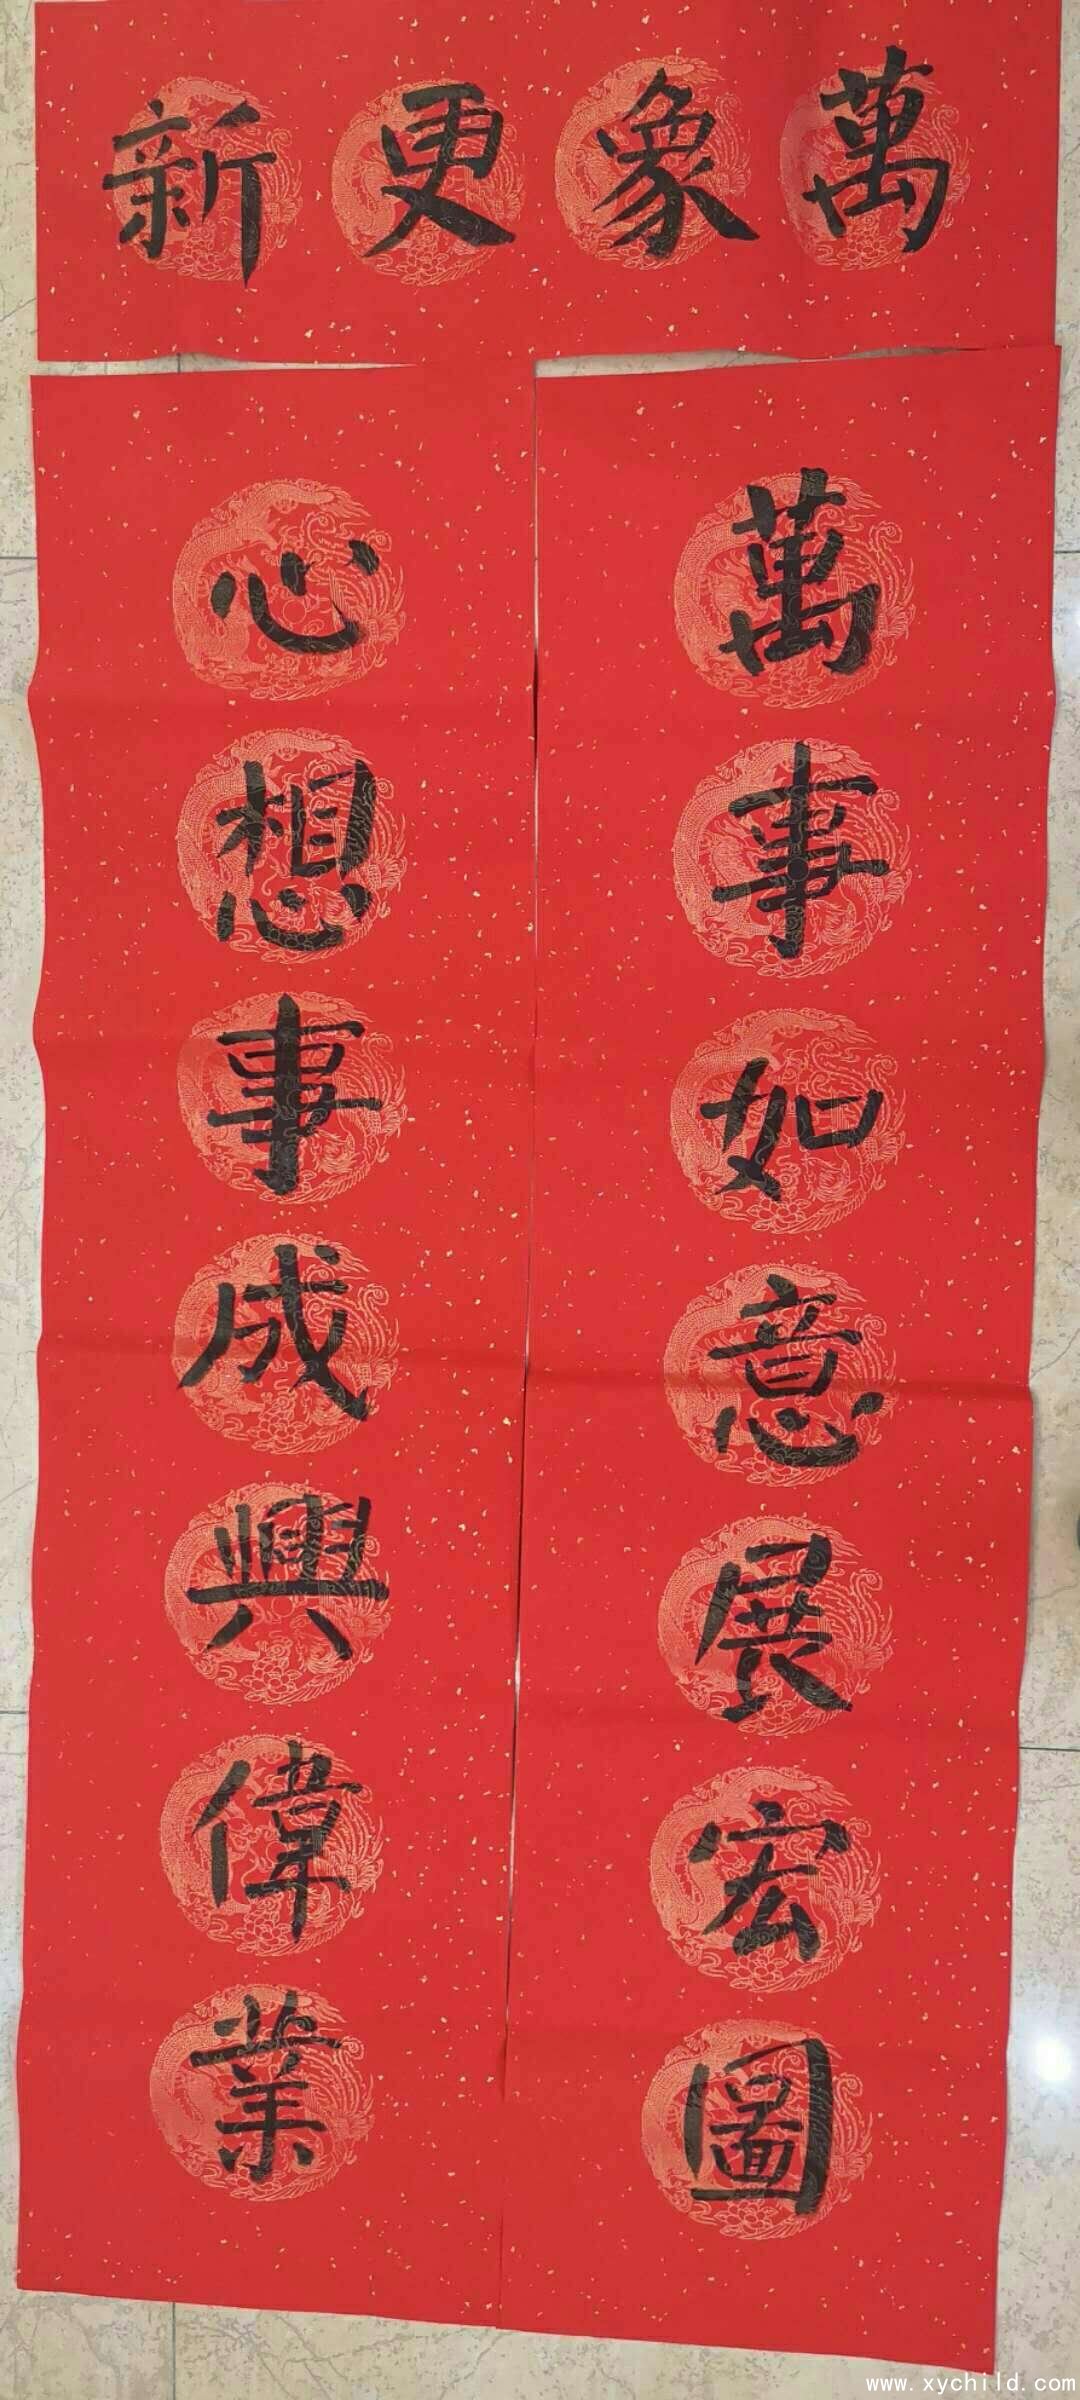 萬象更新
萬事如意展宏圖
心想事成興偉業
www.xychild.com